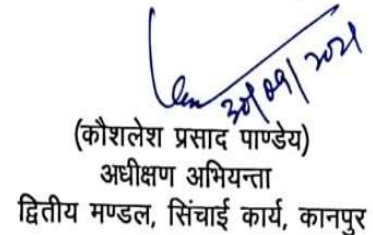 30/09/2021
(कौशलेश प्रसाद पाण्डेय)
अधीक्षण अभियन्ता
द्वितीय मण्डल, सिंचाई कार्य, कानपुर